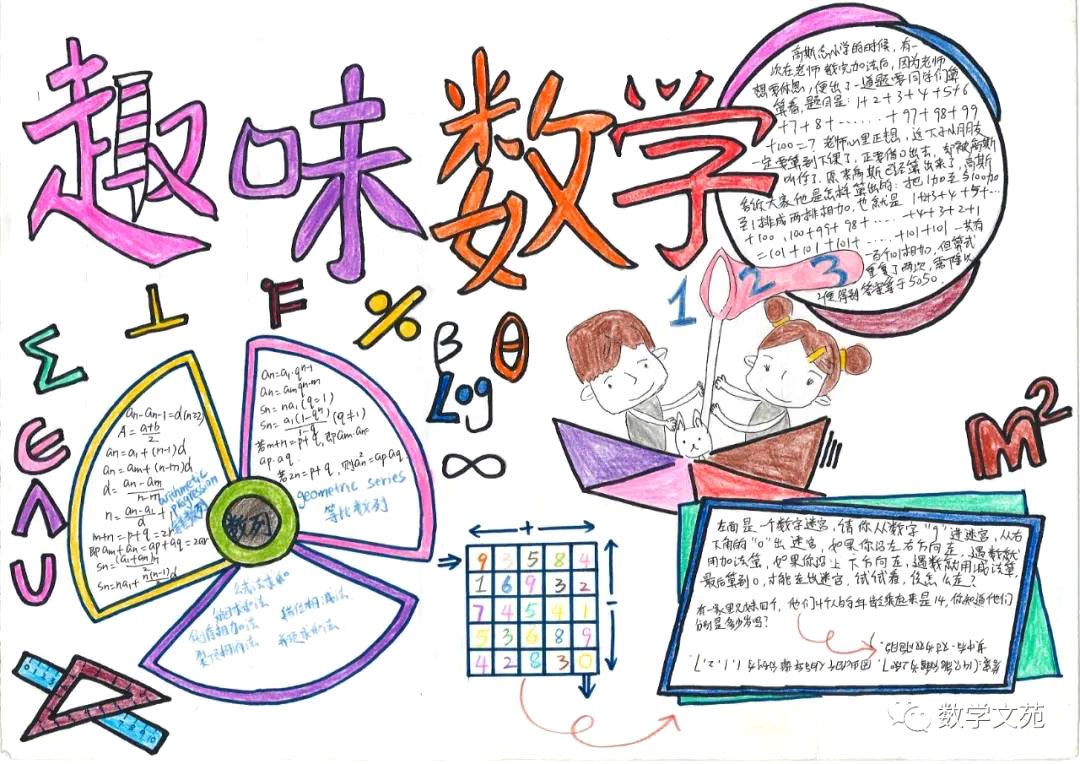 趣味数学
高斯念小学的时候，有一
次在老师教完加法后，因为老师
想要休息，便出了一道题要同学们算
算看，题目是：1+2+3+4+5+6
+7+8+……+97+98+99
+100=？老师心里正想，这下子小朋友
一定要算到下课了，正要借口出去，却被高斯
叫住了。原来高斯已经算出来了，高斯
告诉大家他是怎样算出的：把1加至与100加
至1排成两排相加，也就是 1+2+3+4+5+…
+100，100+99+98+……+4+3+2+1
=101+101+101+……+101+101 一共有
一百个101相加，但算式
重复了两次，
答案等于5050。
1 2 3
⊥
F
%
β
θ
Log
∞
Σ
∈
∧
∪
M²
an-an-1=d(n≥2)
A=a+b/2
an=a1+(n-1)d
an=am+(n-m)d
d=an-am/n-m
n=an-a1/d+1
m+n=p+q
即am+an=ap+aq
Sn=(a1+an)n/2
Sn=na1+n(n-1)/2d
arithmetic
progression
an=a1·qⁿ⁻¹
an=am·qⁿ⁻ᵐ
Sn=na1(q=1)
Sn=a1(1-qⁿ)/1-q(q≠1)
若m+n=p+q，即am·an=
ap·aq
若2n=p+q，则an²=ap·aq
geometric series
等比数列
数列
公式法
错位相减法
倒序相加法
裂项相消法
+
9 3 5 8 4
1 6 9 3 2
7 4 5 4 1
5 3 6 8 9
4 2 8 3 0
左面是一个数字迷宫，请你从数字“9”进迷宫，从右
下角的“0”出迷宫，如果你沿左右方向走，遇数就
用加法算，如果你沿上下方向走，遇数就用减法算，
最后算到0，才能走出迷宫。试试看，你怎么走？
有一家里兄妹四个，他们4个人的年龄乘起来是14，你知道他们
分别是多少岁吗？
7 8 9 10
数学文苑